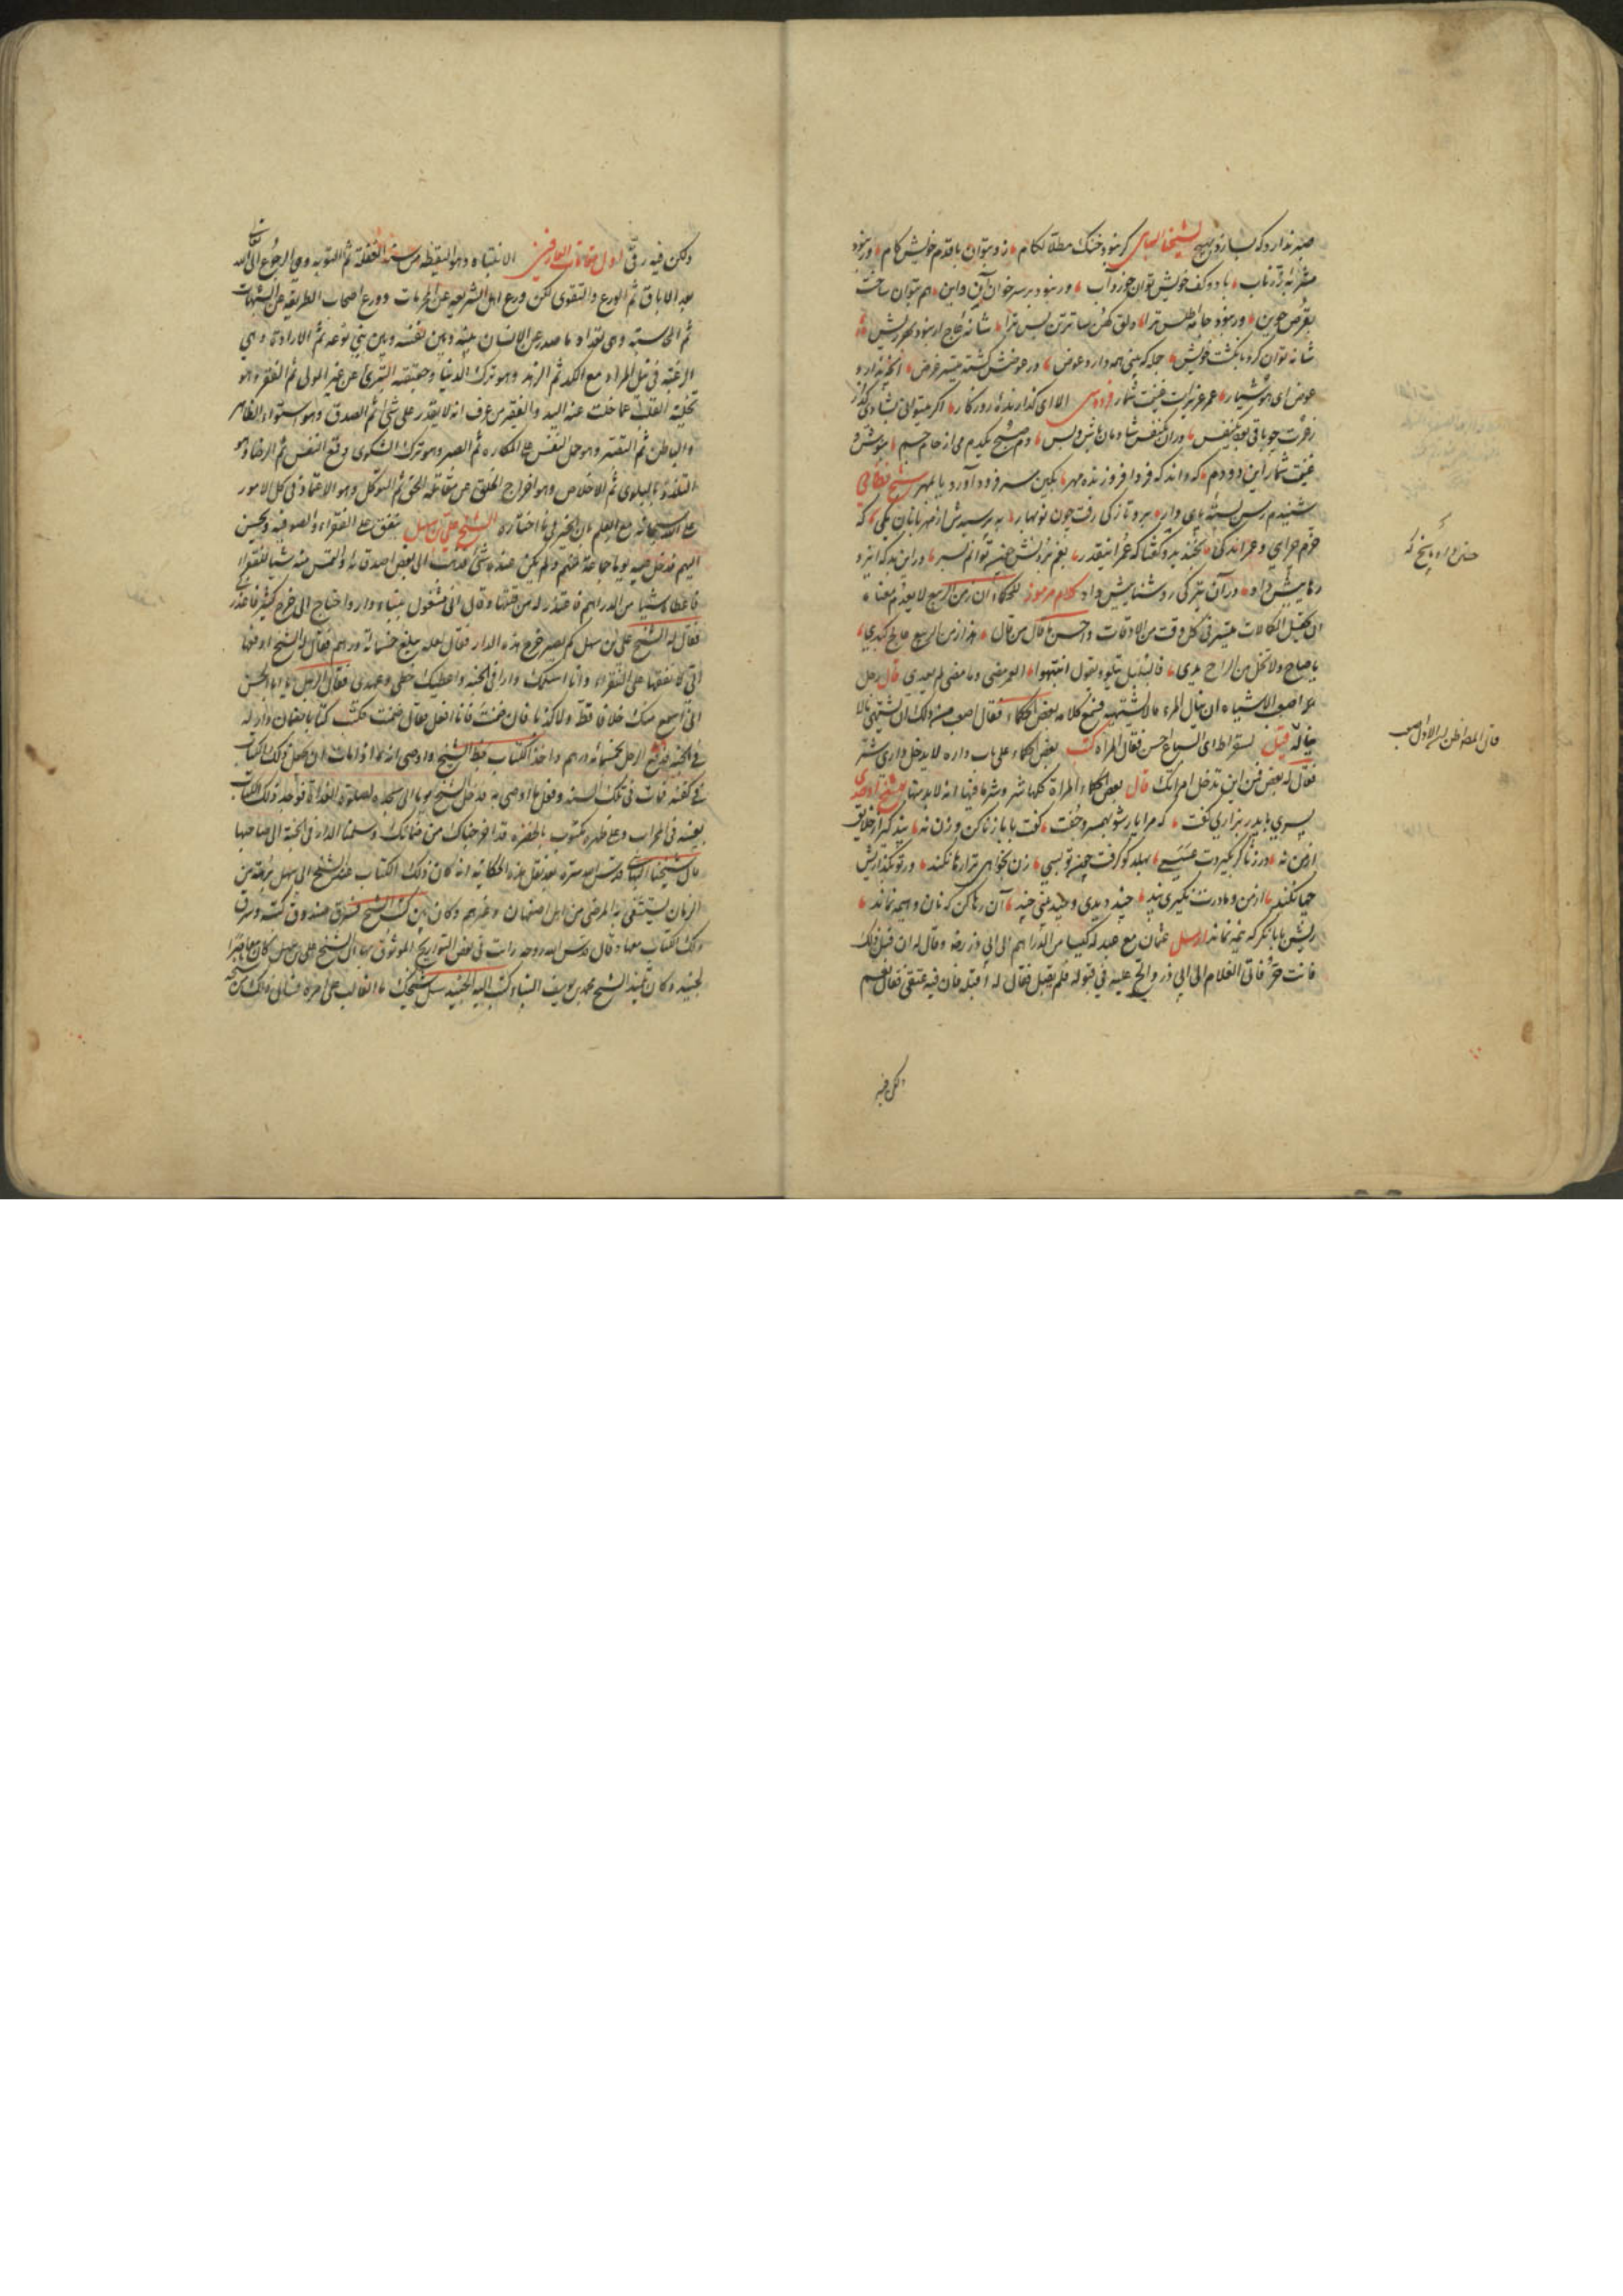 صبر ندارد که بسازد بهیچ لشیخنا البهائی گر نبود خنک مطلا لگام زد بتوان با قدم خویش گام ور نبود
مشربه از زر ناب با دو کف خویش توان خورد آب ور نبود بر سر خوان آن و این هم بتوان ساخت
بقرص جوین ور نبود جامه اطلس ترا دلق کهن ساتر تن بس ترا شانه عاج ار نبود بهر ریش
شانه توان کرد بانگشت خویش جمله که بینی همه دارد عوض در عوضش گشته میسر غرض آنچه ندارد
عوض ای هوشیار عمر عزیزست غنیت شمار فردوسی الا ای گذارنده روزگار
دم صبح یکدم می از جام جم بنوش و
غنیت شمار این دو دم که داند که فردا فروزنده مهر بکین سر فرود آورد یا بمهر شیخ نظامی
شنیدم رسن بسته پای دار برو تازگی رفت چون نوبهار بپرسیدش از مهربانان یکی که
خرم چرایی و عمر اندکی بخندید و گفتا که عمر اینقدر بغم بردنش چون توانم بسر در این بد که ایزد
رهاییش داد در آن تیرگی روشناییش داد کلام مرموز للحکماء ان زمن الربیع لا یعدم معناه
ان تحصیل الکمالات میسر فی کل وقت من الاوقات واحسن ما قال من قال هذا زمن الربیع عالج کبدی
یا صاح ولا تخل من الراح یدی فالبلبل یتلو ویقول انتبهوا العمر مضی وما مضی لم یعد قال رجل
اصعب الاشیاء ان ینال المرء ما لا یشتهیه فسمع کلامه بعض الحکماء فقال اصعب من ذلک ان یشتهی ما لا
یناله قیل لسقراط ای السباع احسن فقال المراة کتب بعض الحکماء علی باب داره لا یدخل داری شر
فقال له بعض فمن این تدخل امراتک قال بعض الحکماء المراة کلها شر وشر ما فیها انه لا بد منها شیخ اوحدی
پسری با پدر بزاری گفت که مرا یار شو بهمسر و جفت گفت بابا زنا کن و زن نه پند گیر از خلایق
از من نه در زنا گر بگیردت عسسی بهلد کو گرفت چون تو بسی زن بخواهی ترا رها نکند ور تو بگذاریش
چها نکند از من و مادرت نگیری پند چند دیدی و چند بینی چند آن رها کن که نان و هیمه نماند
ریش بابا نگر که نیمه نماند ارسل عثمان مع عبد له کیسا من الدراهم الی ابی ذر رض وقال له ان قبل ذلک
فانت حر فاتی الغلام الی ابی ذر والح علیه فی قبوله فلم یقبل فقال له اقبله فان فیه عتقی فقال نعم
لکن فیه
قال الصواظن الاول اصعب
ولکن فیه رقی اول مقامات العارفین الانتباه وهو الیقظه من سنه الغفله ثم التوبه وهی الرجوع الی الله
بعد الاباق ثم الورع والتقوی لکن ورع اهل الشریعه عن المحرمات وورع اصحاب الطریقه عن الشبهات
ثم المحاسبه وهی تعداد ما صدر عن الانسان بینه وبین نفسه وبین بنی نوعه ثم الاراده وهی
الرغبه فی نیل المراد مع الکد ثم الزهد وهو ترک الدنیا وحقیقته التبری عن غیر المولی ثم الفقر وهو
تخلیه القلب عما خلت عنه الید والفقیر من عرف انه لا یقدر علی شئ ثم الصدق وهو استواء الظاهر
والباطن ثم التصبر وهو حمل النفس علی المکاره ثم الصبر وهو ترک الشکوی وقمع النفس ثم الرضا وهو
التلذذ بالبلوی ثم الاخلاص وهو اخراج الخلق عن معامله الحق ثم التوکل وهو الاعتماد فی کل الامور
علی الله سبحانه مع العلم بان الخیر فیما اختاره الشیخ علی بن سهل ینفق علی الفقراء والصوفیه ویحسن
الیهم فدخل علیه یوما جماعه منهم ولم یکن عنده شئ فذهب الی بعض اصدقائه والتمس منه شیئا للفقراء
فاعطاه شیئا من الدراهم فاعتذر له من قلتها وقال انی مشغول ببناء دار واحتاج الی خرج کثیر فاعذر
فقال له الشیخ علی بن سهل کم یصیر خرج هذه الدار فقال لعله یبلغ خمسمائه درهم فقال له الشیخ ادفعها
الی لانفقها علی الفقراء وانا اسلمک دارا فی الجنه واعطیک خطی وعهدی فقال الرجل یا ابا الحسن
انی لم اسمع منک خلافا قط ولا کذبا فان ضمنت فانا افعل فقال ضمنت فکتب کتابا بضمان دار له
فی الجنه فدفع الرجل خمسمائه درهم واخذ الکتاب بخط الشیخ واوصی انه اذا مات ان یجعل ذلک الکتاب
فی کفنه فمات فی تلک السنه وفعل ما اوصی به فدخل الشیخ یوما الی مسجده لصلوة الغداة فوجد ذلک الکتاب
بعینه فی المحراب وعلی ظهره مکتوب بالخضره قد اخرجناک من ضمانک وسلمنا الدار فی الجنة الی صاحبها
قال شیخنا البهائی قدس سره بعد نقل هذه الحکایه انه کان ذلک الکتاب عند الشیخ ابن سهل برهه من
الزمان یستشفی به المرضی من اهل اصفهان وغیرهم وکان بین کتب الشیخ فسرق صندوق کتبه وسرق
ذلک الکتاب معها وقال قدس الله روحه رایت فی بعض التواریخ الموثوق بها ان الشیخ علی بن سهل کان معاصرا
للجنید وکان تلمیذ الشیخ محمد بن یوسف البناء کتب الیه الجنید سل شیخک ما الغالب علی امره فسال ذلک من شیخه